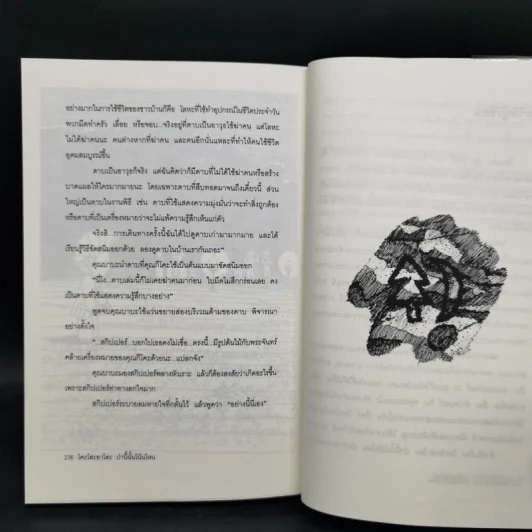 อย่างมากในการใช้ชีวิตของชาวบ้านก็คือ โลหะที่ใช้ทำอุปกรณ์ในชีวิตประจำวัน
พวกมีดทำครัว เลื่อย หรือจอบ...จริงอยู่ที่ดาบเป็นอาวุธใช้ฆ่าคน แต่โลหะ
ไม่ได้ฆ่าคนนะ คนต่างหากที่ฆ่าคน และคนอีกนั่นแหละที่ทำให้คนใช้ชีวิต
อุดมสมบูรณ์ขึ้น
ดาบเป็นอาวุธก็จริง แต่ฉันคิดว่าก็มีดาบที่ไม่ได้ใช้ฆ่าคนหรือสร้าง
บาดแผลให้ใครมากมายนะ โดยเฉพาะดาบที่สืบทอดมาจนถึงเดี๋ยวนี้ ส่วน
ใหญ่เป็นดาบในงานพิธี เช่น ดาบที่ใช้แสดงความมุ่งมั่นว่าจะทำสิ่งถูกต้อง
หรือดาบที่เป็นเครื่องหมายว่าจะไม่แพ้ความรู้สึกเห็นแก่ตัว
จริงสิ การเดินทางครั้งนี้ฉันได้ไปดูดาบเก่ามามากมาย และได้
เรียนรู้วิธีขัดสนิมออกด้วย ลองดูดาบในบ้านเรากันเถอะ"
คุณบาบะนำดาบที่คุณกิโคะใช้เป็นต้นแบบมาขัดสนิมออก
"นี่ไง...ดาบเล่มนี้ก็ไม่เคยฆ่าคนมาก่อน ใบมีดไม่สึกกร่อนเลย คง
เป็นดาบที่ใช้แสดงความรู้สึกบางอย่าง"
พูดจบคุณบาบะใช้แว่นขยายส่องบริเวณด้ามของดาบ พิจารณา
อย่างตั้งใจ
"...สกิปเปอร์...บอกไปเธอคงไม่เชื่อ...ตรงนี้...มีรูปต้นไม้กับพระจันทร์
คล้ายเครื่องหมายของคุณกิโคะด้วยนะ...แปลกจัง"
คุณบาบะมองสกิปเปอร์พลางหัวเราะ แล้วก็ต้องสงสัยว่าเกิดอะไรขึ้น
เพราะสกิปเปอร์ทำทางตกใจมาก
สกิปเปอร์ระบายลมหายใจที่กลั้นไว้ แล้วพูดว่า "อย่างนี้นี่เอง"